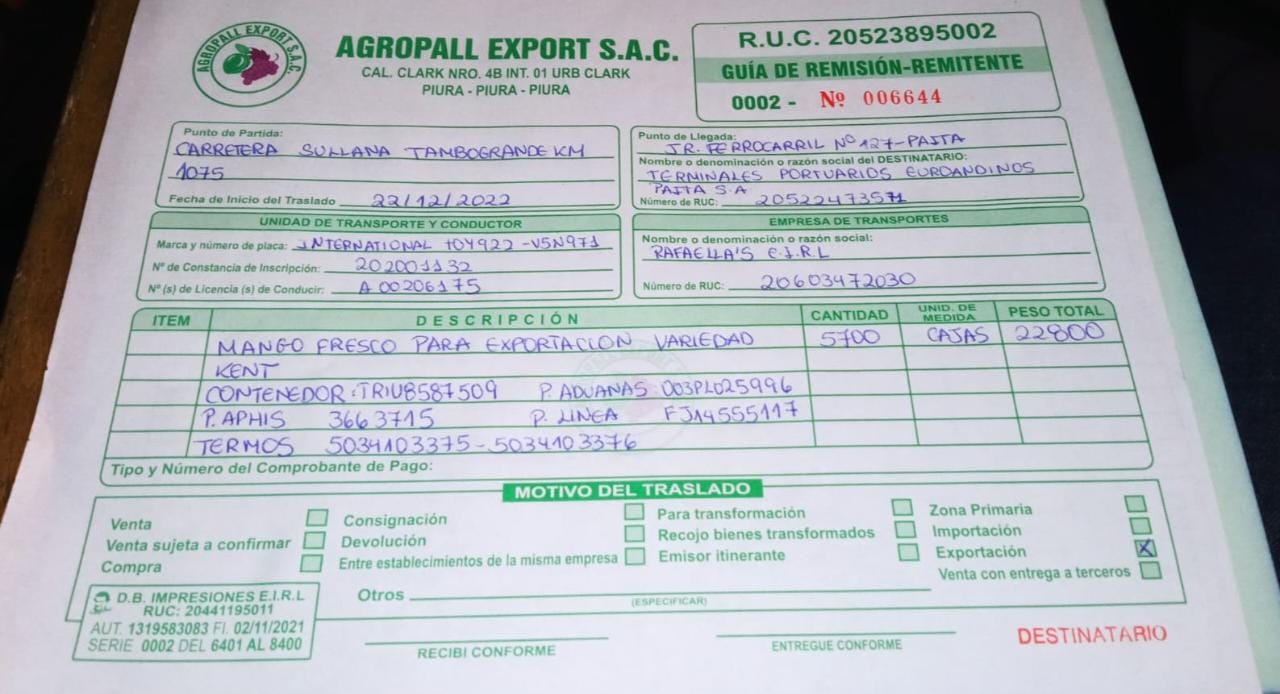 AGROPALL EXPORT S.A.C.
AGROPALL EXPORT S.A.C.
CAL. CLARK NRO. 4B INT. 01 URB CLARK
PIURA - PIURA - PIURA
R.U.C. 20523895002
GUÍA DE REMISIÓN-REMITENTE
0002 - Nº 006644
Punto de Partida:
CARRETERA SULLANA TAMBOGRANDE KM
1075
Fecha de Inicio del Traslado 22/12/2022
Punto de Llegada: JR. FERROCARRIL Nº 127-PAITA
Nombre o denominación o razón social del DESTINATARIO:
TERMINALES PORTUARIOS EUROANDINOS
PAITA S.A
Número de RUC: 20522473571
UNIDAD DE TRANSPORTE Y CONDUCTOR
Marca y número de placa: INTERNATIONAL T0Y922 -V5N971
Nº de Constancia de Inscripción: 202001132
Nº (s) de Licencia (s) de Conducir: A 00206175
EMPRESA DE TRANSPORTES
Nombre o denominación o razón social:
RAFAELLA'S E.I.R.L
Número de RUC: 20603472030
ITEM DESCRIPCIÓN CANTIDAD UNID. DE MEDIDA PESO TOTAL
MANGO FRESCO PARA EXPORTACION VARIEDAD 5700 CAJAS 22800
KENT
CONTENEDOR: TRIU8587509 P. ADUANAS 003PL025996
P. APHIS 3663715 P. LINEA FJ14555117
TERMOS 5034103375-5034103376
Tipo y Número del Comprobante de Pago:
MOTIVO DEL TRASLADO
Venta Consignación Para transformación Zona Primaria
Venta sujeta a confirmar Devolución Recojo bienes transformados Importación
Compra Entre establecimientos de la misma empresa Emisor itinerante Exportación X
Venta con entrega a terceros
Otros
(ESPECIFICAR)
D.B. IMPRESIONES E.I.R.L
RUC: 20441195011
AUT. 1319583083 FI. 02/11/2021
SERIE 0002 DEL 6401 AL 8400
RECIBI CONFORME
ENTREGUE CONFORME
DESTINATARIO